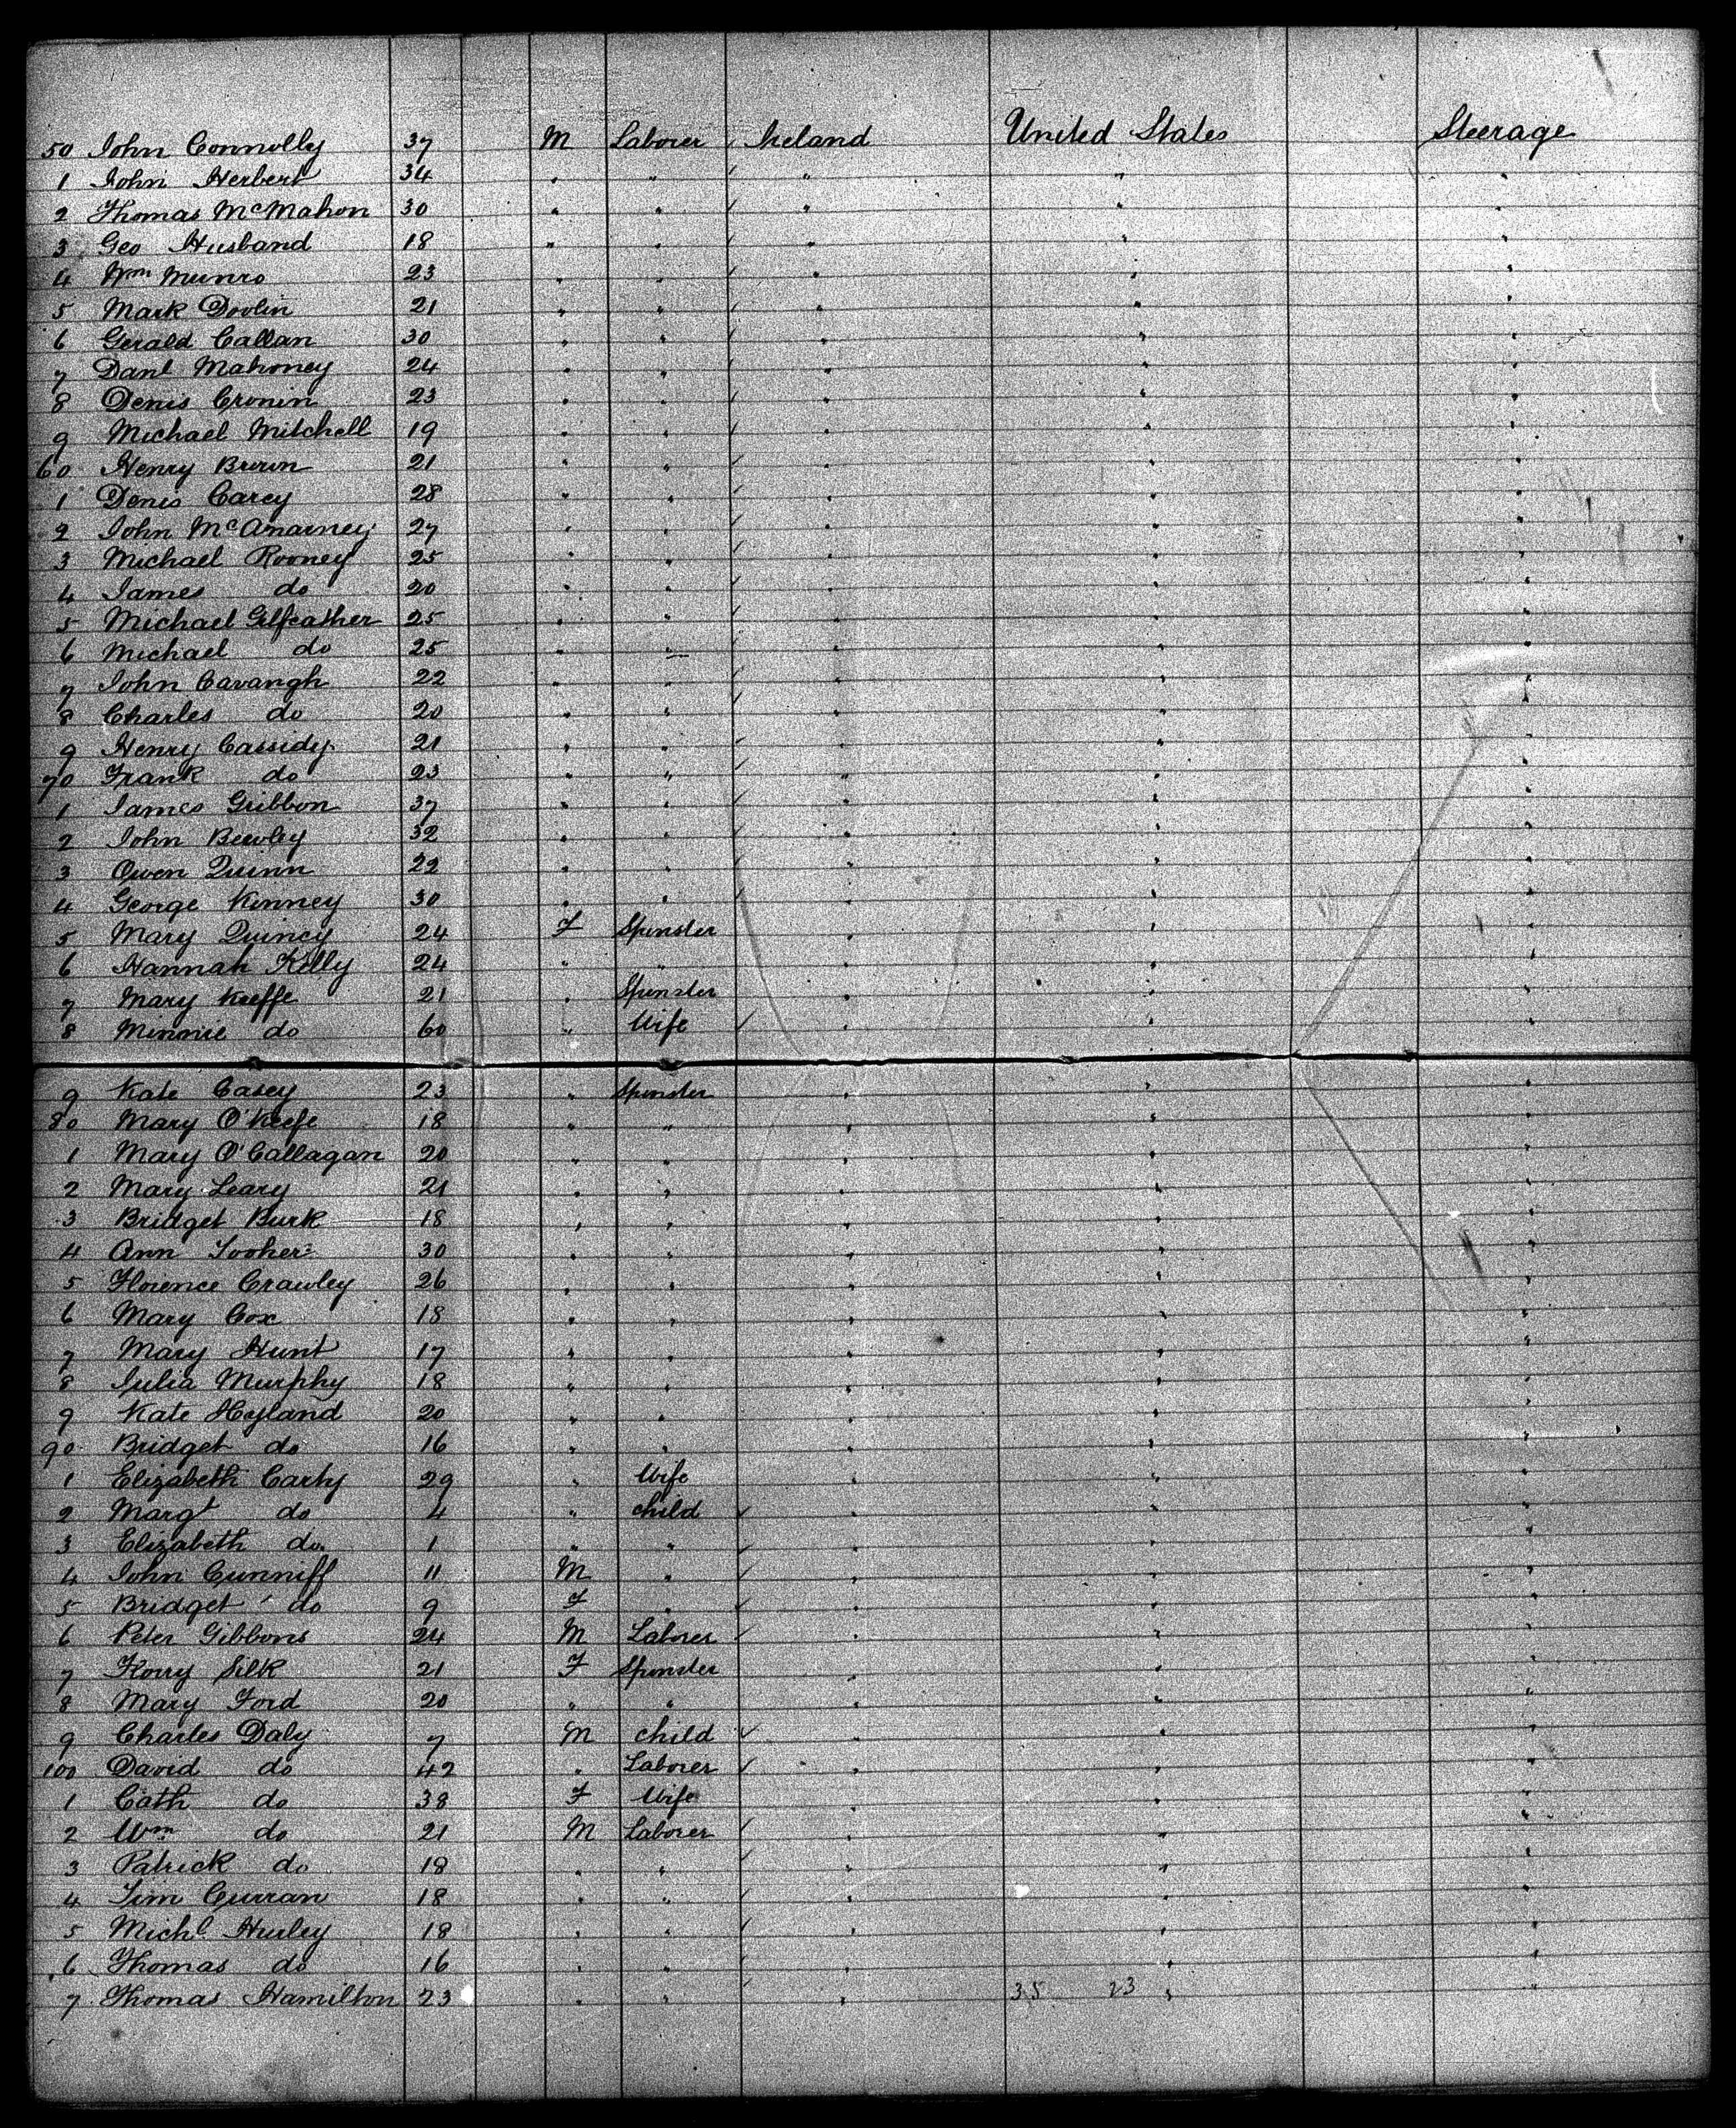 50 John Connolly 37 M Laborer Ireland United States Steerage
1 John Herbert 34 " " " " "
2 Thomas McMahon 30 " " " " "
3 Geo Husband 18 " " " " "
4 Wm Munro 23 " " " " "
5 Mark Doolin 21 " " " " "
6 Gerald Callan 30 " " " " "
7 Danl Mahoney 24 " " " " "
8 Denis Cronin 23 " " " " "
9 Michael Mitchell 19 " " " " "
60 Henry Brown 21 " " " " "
1 Denis Carey 28 " " " " "
2 John McAnarney 27 " " " " "
3 Michael Rooney 25 " " " " "
4 James do 20 " " " " "
5 Michael Gilfeather 25 " " " " "
6 Michael do 25 " " " " "
7 John Cavangh 22 " " " " "
8 Charles do 20 " " " " "
9 Henry Cassidy 21 " " " " "
70 Frank do 23 " " " " "
1 James Gribbon 37 " " " " "
2 John Bewley 32 " " " " "
3 Owen Quinn 22 " " " " "
4 George Kinney 30 " " " " "
5 Mary Quincy 24 F Spinster " " "
6 Hannah Kelly 24 " " " " "
7 Mary Keeffe 21 " Spinster " " "
8 Minnie do 60 " Wife " " "
9 Kate Casey 23 " Spinster " " "
80 Mary O'Keefe 18 " " " " "
1 Mary O'Callagan 20 " " " " "
2 Mary Leary 21 " " " " "
3 Bridget Burk 18 " " " " "
4 Ann Tooher 30 " " " " "
5 Florence Crawley 26 " " " " "
6 Mary Cox 18 " " " " "
7 Mary Hunt 17 " " " " "
8 Julia Murphy 18 " " " " "
9 Kate Hyland 20 " " " " "
90 Bridget do 16 " " " " "
1 Elizabeth Carty 29 " Wife " " "
2 Margt do 4 " child " " "
3 Elizabeth do 1 " " " " "
4 John Cunniff 11 M " " " "
5 Bridget do 9 F " " " "
6 Peter Gibbons 24 M Laborer " " "
7 Silk 21 F Spinster " " "
8 Mary Ford 20 " " " " "
9 Charles Daly 7 M child " " "
100 David do 42 " Laborer " " "
1 Cath do 38 F Wife " " "
2 Wm do 21 M Laborer " " "
3 Patrick do 18 " " " " "
4 Tim Curran 18 " " " " "
5 Michl Hurley 18 " " " " "
6 Thomas do 16 " " " " "
7 Thomas Hamilton 23 " " " 35 23 " "